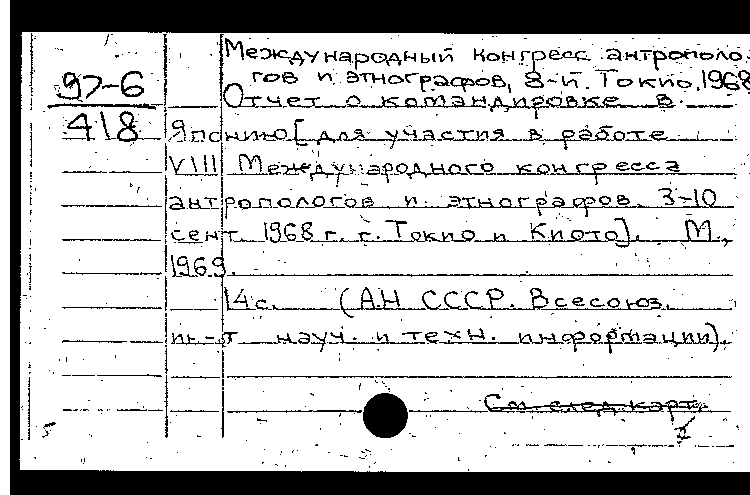 Международный конгресс антрополо-
гов и этнографов, 8-й. Токио, 1968
97-6
418
Отчет о командировке в
Японию [для участия в работе
VIII Международного конгресса
антропологов и этнографов. 3-10
сент. 1968 г. г. Токио и Киото]. М.,
1969.
14 с. (АН СССР. Всесоюз.
ин-т науч. и техн. информации).
См. след. карт.